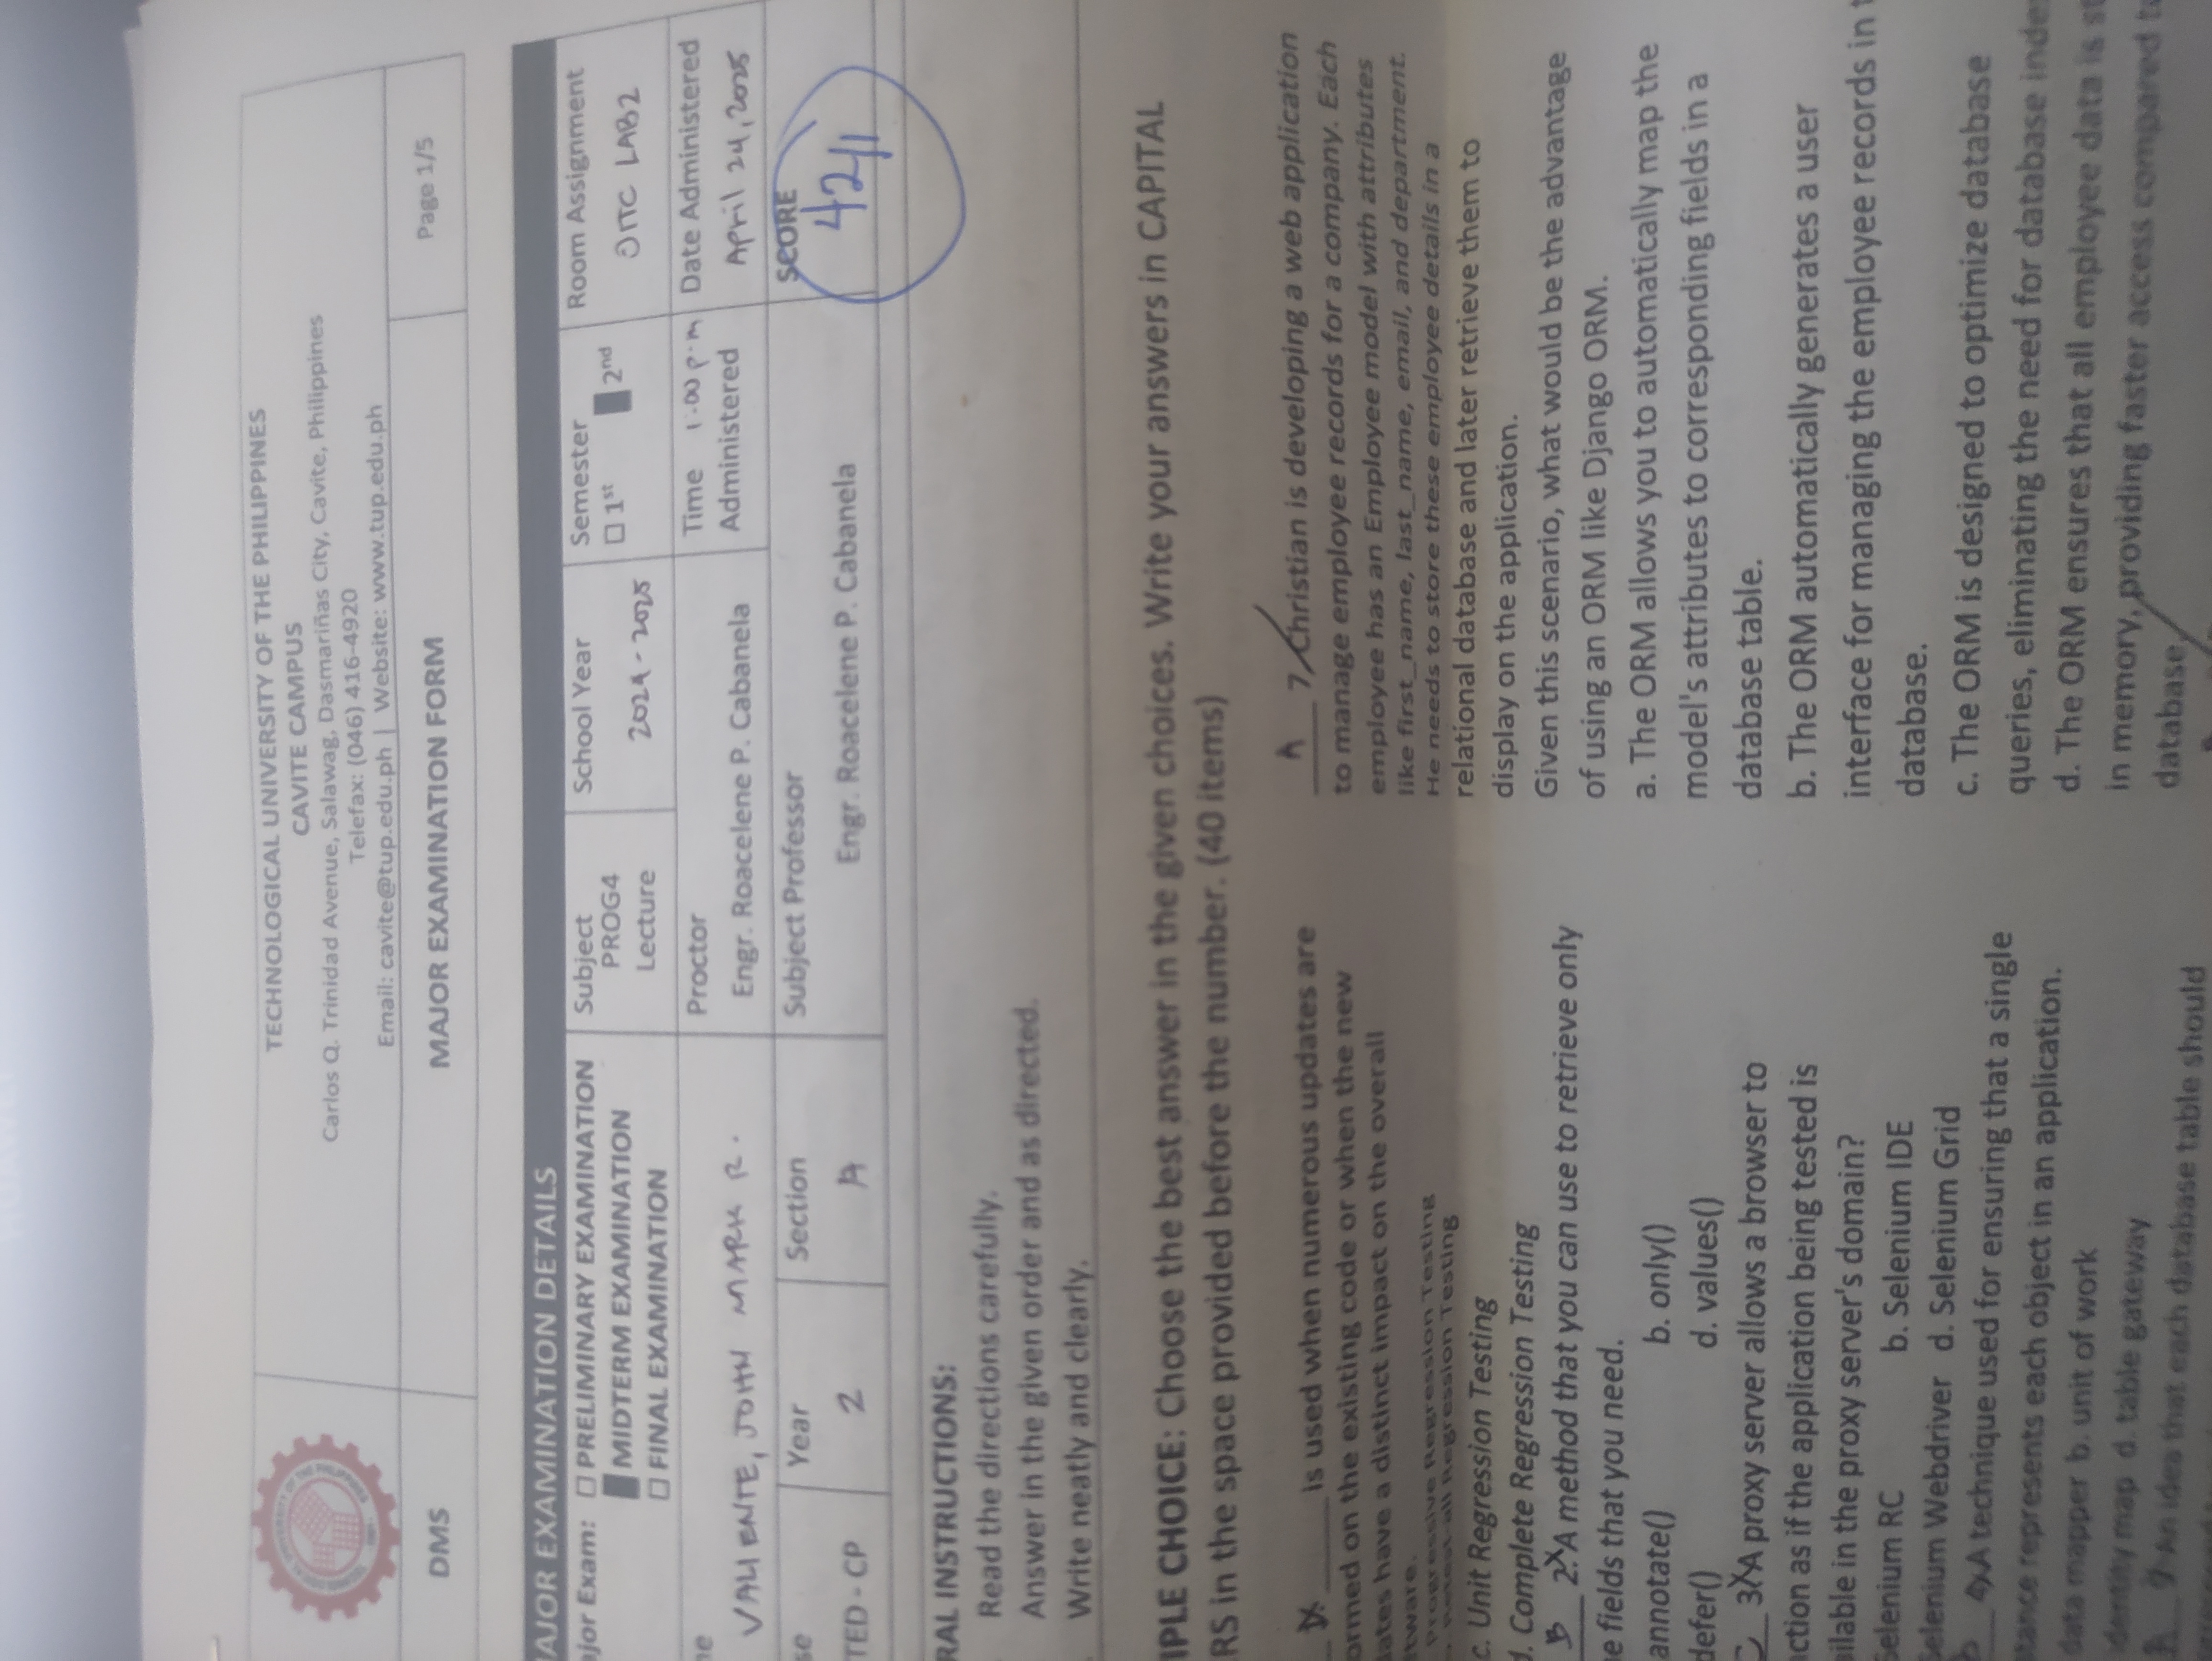 HUAWEI
TECHNOLOGICAL UNIVERSITY OF THE PHILIPPINES
CAVITE CAMPUS
Carlos Q. Trinidad Avenue, Salawag, Dasmariñas City, Cavite, Philippines
Telefax: (046) 416-4920
Email: cavite@tup.edu.ph | Website: www.tup.edu.ph
DMS
MAJOR EXAMINATION FORM
Page 1/5
AJOR EXAMINATION DETAILS
ajor Exam: ☐ PRELIMINARY EXAMINATION
MIDTERM EXAMINATION
☐ FINAL EXAMINATION
Subject
PROG4
Lecture
School Year
2024-2025
Semester
☐ 1st 2nd
Room Assignment
LAB2
me
VALIENTE, JOHN MARK R.
Proctor
Engr. Roacelene P. Cabanela
Time 1:00 p.m
Administered
Date Administered
April 24, 2025
se
TED - CP
Year
2
Section
A
Subject Professor
Engr. Roacelene P. Cabanela
SCORE
42//
RAL INSTRUCTIONS:
Read the directions carefully.
Answer in the given order and as directed.
Write neatly and clearly.
IPLE CHOICE: Choose the best answer in the given choices. Write your answers in CAPITAL
RS in the space provided before the number. (40 items)
______ is used when numerous updates are
ormed on the existing code or when the new
dates have a distinct impact on the overall
tware.
Progressive Regression Testing
Retest-all Regression Testing
c. Unit Regression Testing
d. Complete Regression Testing
B 2. A method that you can use to retrieve only
e fields that you need.
annotate() b. only()
defer() d. values()
C 3. A proxy server allows a browser to
nction as if the application being tested is
ailable in the proxy server's domain?
Selenium RC b. Selenium IDE
Selenium Webdriver d. Selenium Grid
4. A technique used for ensuring that a single
stance represents each object in an application.
data mapper b. unit of work
identity map d. table gateway
An idea that each database table should
A 7. Christian is developing a web application
to manage employee records for a company. Each
employee has an Employee model with attributes
like first_name, last_name, email, and department.
He needs to store these employee details in a
relational database and later retrieve them to
display on the application.
Given this scenario, what would be the advantage
of using an ORM like Django ORM.
a. The ORM allows you to automatically map the
model's attributes to corresponding fields in a
database table.
b. The ORM automatically generates a user
interface for managing the employee records in t
database.
c. The ORM is designed to optimize database
queries, eliminating the need for database inde
d. The ORM ensures that all employee data is st
in memory, providing faster access compared t
database.